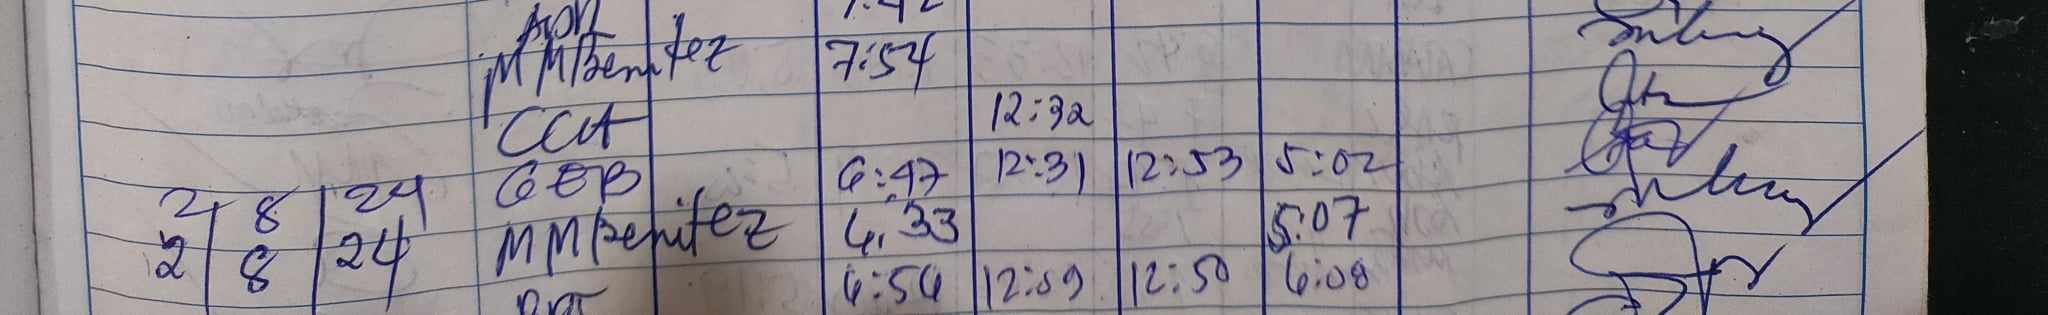 7:42
MMBenitez 7:54
CCA 12:32
2/8/24 GEB 6:47 12:31 12:53 5:02
2/8/24 MMBenitez 6:33 5:07
6:54 12:09 12:50 6:08